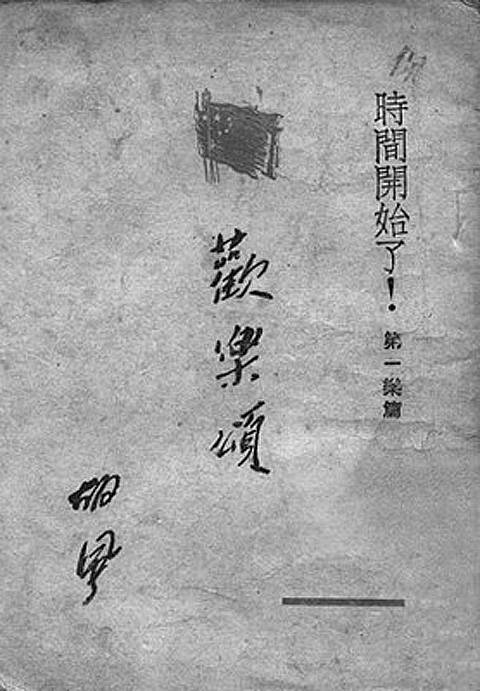 時間開始了！ 第一樂篇
歡樂頌
胡風